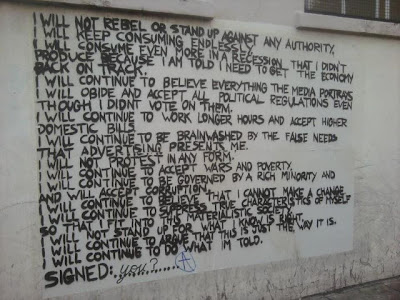 I WILL NOT REBEL OR STAND UP AGAINST ANY AUTHORITY.
I WILL KEEP CONSUMING ENDLESSLY.
I WILL CONSUME EVEN MORE IN A RECESSION, THAT I DIDN'T
PRODUCE BECAUSE I AM TOLD I NEED TO GET THE ECONOMY
BACK ON TRACK.
I WILL CONTINUE TO BELIEVE EVERYTHING THE MEDIA PORTRAYS
I WILL OBIDE AND ACCEPT ALL POLITICAL REGULATIONS EVEN
THOUGH I DIDNT VOTE ON THEM.
I WILL CONTINUE TO WORK LONGER HOURS AND ACCEPT HIGHER
DOMESTIC BILLS.
I WILL CONTINUE TO BE BRAINWASHED BY THE FALSE NEEDS
THAT ADVERTISING PRESENTS ME.
I WILL NOT PROTEST IN ANY FORM.
I WILL CONTINUE TO ACCEPT WARS AND POVERTY.
I WILL CONTINUE TO BE GOVERNED BY A RICH MINORITY AND
AND WILL ACCEPT CORRUPTION.
I WILL CONTINUE TO BELIEVE THAT I CANNOT MAKE A CHANGE
I WILL CONTINUE TO SUPPRESS TRUE CHARACTERISTICS OF MYSELF
SO THAT I FIT IN THIS MATERIALISTIC SOCIETY
I WILL NOT STAND UP FOR WHAT I KNOW IS RIGHT.
I WILL CONTINUE TO ARGUE THAT THIS IS JUST THE WAY IT IS.
I WILL CONTINUE TO DO WHAT IM TOLD.
SIGNED:..you?......